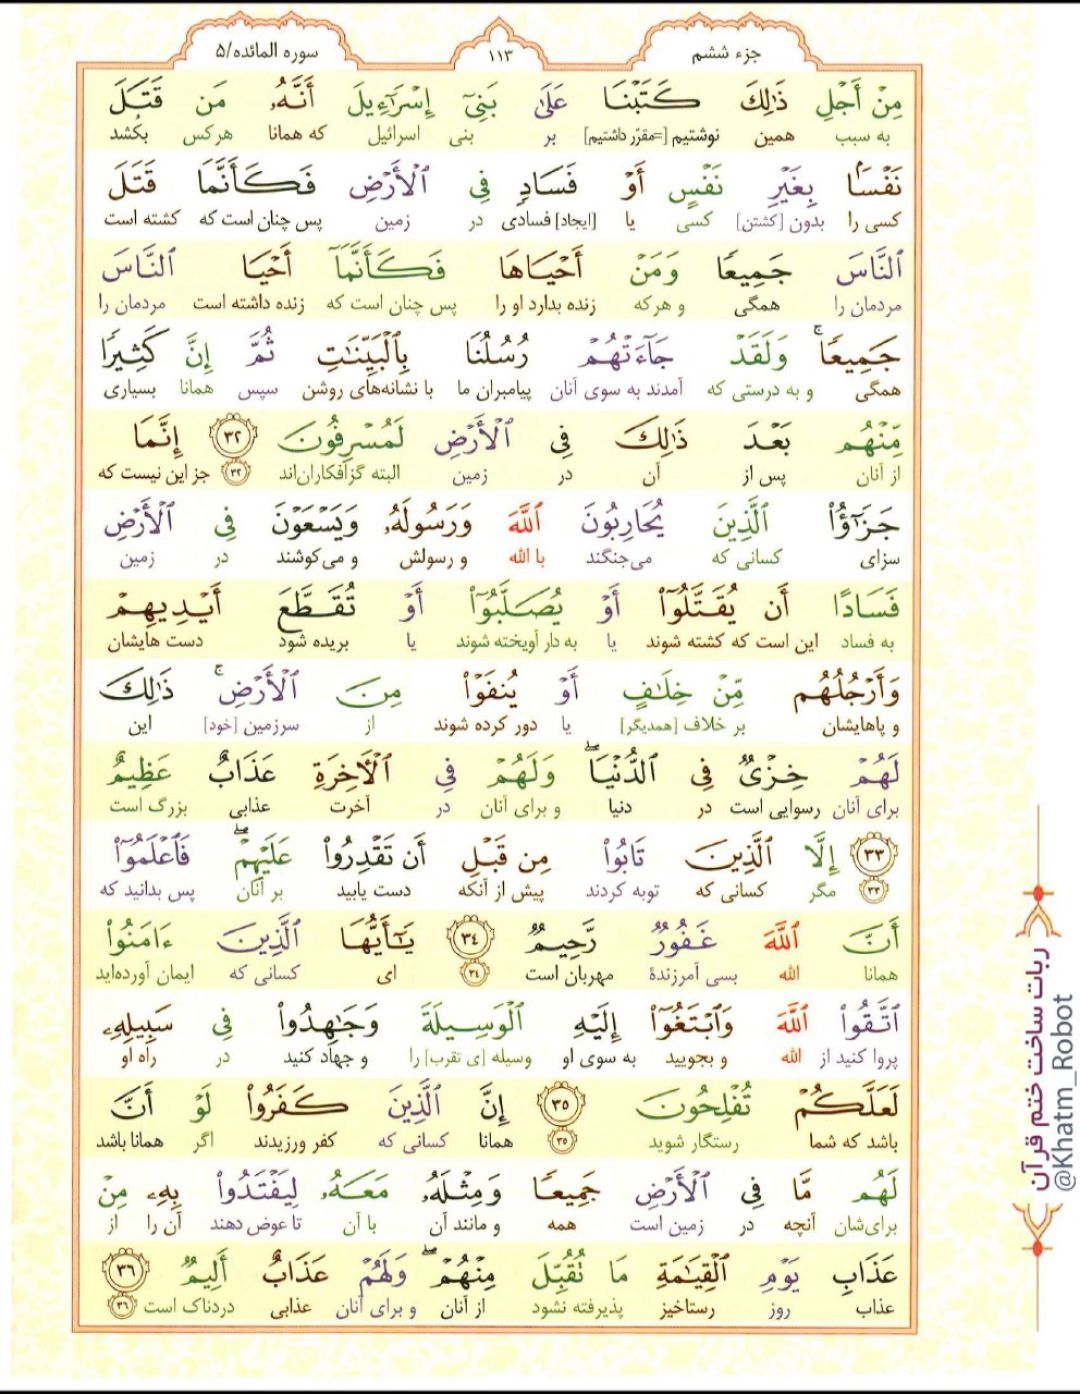 جزء ششم
۱۱۳
سوره المائده/۵
مِنْ أَجْلِ ذَٰلِكَ كَتَبْنَا عَلَىٰ بَنِىٓ إِسْرَٰٓءِيلَ أَنَّهُۥ مَن قَتَلَ
به سبب همین نوشتیم [=مقرّر داشتیم] بر بنی اسرائیل که همانا هرکس بکُشد
نَفْسًۢا بِغَيْرِ نَفْسٍ أَوْ فَسَادٍ فِى ٱلْأَرْضِ فَكَأَنَّمَا قَتَلَ
کسی را بدون [کشتن] کسی یا [ایجاد] فسادی در زمین پس چنان است که کشته است
ٱلنَّاسَ جَمِيعًا وَمَنْ أَحْيَاهَا فَكَأَنَّمَآ أَحْيَا ٱلنَّاسَ
مردمان را همگی و هرکه زنده بدارد او را پس چنان است که زنده داشته است مردمان را
جَمِيعًا ۚ وَلَقَدْ جَآءَتْهُمْ رُسُلُنَا بِٱلْبَيِّنَٰتِ ثُمَّ إِنَّ كَثِيرًا
همگی و به درستی که آمدند به سوی آنان پیامبران ما با نشانه‌های روشن سپس همانا بسیاری
مِّنْهُم بَعْدَ ذَٰلِكَ فِى ٱلْأَرْضِ لَمُسْرِفُونَ ٣٢ إِنَّمَا
از آنان پس از آن در زمین البته گزافکاران‌اند ۳۲ جز این نیست که
جَزَٰٓؤُا۟ ٱلَّذِينَ يُحَارِبُونَ ٱللَّهَ وَرَسُولَهُۥ وَيَسْعَوْنَ فِى ٱلْأَرْضِ
سزای کسانی که می‌جنگند با الله و رسولش و می‌کوشند در زمین
فَسَادًا أَن يُقَتَّلُوٓا۟ أَوْ يُصَلَّبُوٓا۟ أَوْ تُقَطَّعَ أَيْدِيهِمْ
به فساد این است که کشته شوند یا به دار آویخته شوند یا بریده شود دست هایشان
وَأَرْجُلُهُم مِّنْ خِلَٰفٍ أَوْ يُنفَوْا۟ مِنَ ٱلْأَرْضِ ۚ ذَٰلِكَ
و پاهایشان بر خلاف [همدیگر] یا دور کرده شوند از سرزمین [خود] این
لَهُمْ خِزْىٌ فِى ٱلدُّنْيَا ۖ وَلَهُمْ فِى ٱلْأَخِرَةِ عَذَابٌ عَظِيمٌ
برای آنان رسوایی است در دنیا و برای آنان در آخرت عذابی بزرگ است
٣٣ إِلَّا ٱلَّذِينَ تَابُوا۟ مِن قَبْلِ أَن تَقْدِرُوا۟ عَلَيْهِمْ ۖ فَٱعْلَمُوٓا۟
۳۳ مگر کسانی که توبه کردند پیش از آنکه دست یابید بر آنان پس بدانید که
أَنَّ ٱللَّهَ غَفُورٌ رَّحِيمٌ ٣٤ يَٰٓأَيُّهَا ٱلَّذِينَ ءَامَنُوا۟
همانا الله بسی آمرزندهٔ مهربان است ۳۴ ای کسانی که ایمان آورده‌اید
ٱتَّقُوا۟ ٱللَّهَ وَٱبْتَغُوٓا۟ إِلَيْهِ ٱلْوَسِيلَةَ وَجَٰهِدُوا۟ فِى سَبِيلِهِۦ
پروا کنید از الله و بجویید به سوی او وسیله [ی تقرب] را و جهاد کنید در راه او
لَعَلَّكُمْ تُفْلِحُونَ ٣٥ إِنَّ ٱلَّذِينَ كَفَرُوا۟ لَوْ أَنَّ
باشد که شما رستگار شوید ۳۵ همانا کسانی که کفر ورزیدند اگر همانا باشد
لَهُم مَّا فِى ٱلْأَرْضِ جَمِيعًا وَمِثْلَهُۥ مَعَهُۥ لِيَفْتَدُوا۟ بِهِۦ مِنْ
برای‌شان آنچه در زمین است همه و مانند آن با آن تا عوض دهند آن را از
عَذَابِ يَوْمِ ٱلْقِيَٰمَةِ مَا تُقُبِّلَ مِنْهُمْ ۖ وَلَهُمْ عَذَابٌ أَلِيمٌ ٣٦
عذاب روز رستاخیز پذیرفته نشود از آنان و برای آنان عذابی دردناک است ۳۶
ربات ساخت ختم قرآن
@Khatm_Robot